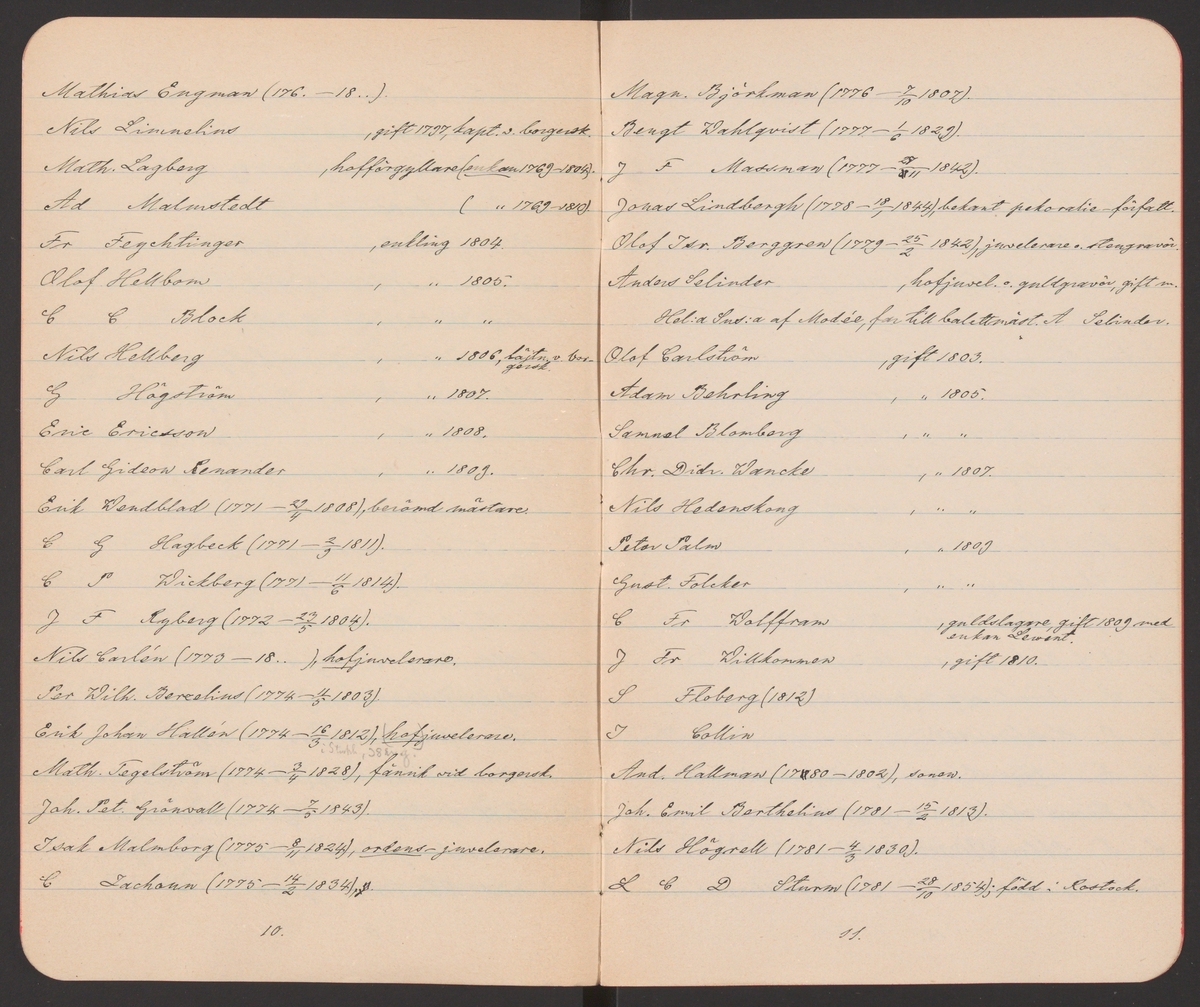 Mathias Engman (176. – 18..).
Nils Limnelius , gift 1797, kapt. v. borgersk.
Math. Lagberg , hofförgyllare (enkan 1769–1804).
Ad Malmstedt ( „ 1769–1810)
Fr Feychtinger , enkling 1804.
Olof Hellbom , „ 1805.
C C Block , „ „
Nils Hellberg , „ 1806, löjtn. v. bor-
gersk.
G Högström , „ 1807.
Eric Ericsson , „ 1808.
Carl Gideon Renander , „ 1809.
Erik Wendblad (1771 – 29/11 1808), berömd mästare.
C G Hagbeck (1771 – 2/9 1811).
C P Wickberg (1771 – 11/6 1814).
J F Ryberg (1772 – 23/5 1804).
Nils Carlén (1773 – 18.. ), hofjuvelerare.
Per Wilh. Berzelius (1774 – 4/5 1803).
Erik Johan Hallén (1774 – 16/3 1812), hofjuvelerare.
Math. Tegelström (1774 – 3/11 1828), fänrik vid borgersk.
Joh. Pet. Grönvall (1774 – 7/5 1843).
Isak Malmborg (1775 – 8/11 1824), ordens-juvelerare.
C Zachoun (1775 – 14/2 1834),
10.
Magn. Björkman (1776 – 7/10 1807).
Bengt Wahlqvist (1777 – 1/6 1829).
J F Massman (1777 – 28/11 1842).
Jonas Lindbergh (1778 – 18/1 1844), bekant pekoralie-författ.
Olof Isr. Berggren (1779 – 25/2 1842), juvelerare o. stengravör.
Anders Selinder , hofjuvel. o. guldgravör, gift m.
Hel:a Sus:a af Modée, far till balettmäst. A Selinder.
Olof Carlström , gift 1803.
Adam Behrling , „ 1805.
Samuel Blomberg , „ „
Chr. Didr. Wancke , „ 1807.
Nils Hedenskong , „ „
Peter Palm , „ 1809
Gust. Folcker , „ „
C Fr Wolffram , guldslagare, gift 1809 med
enkan Lewent.
J Fr Willkommen , gift 1810.
S Floberg (1812)
I Collin
And. Hallman (1780 – 1802), sonen.
Joh. Emil Berthelius (1781 – 15/2 1813).
Nils Högrell (1781 – 4/3 1830).
L C D Sturm (1781 – 28/10 1854); född i Rostock.
11.